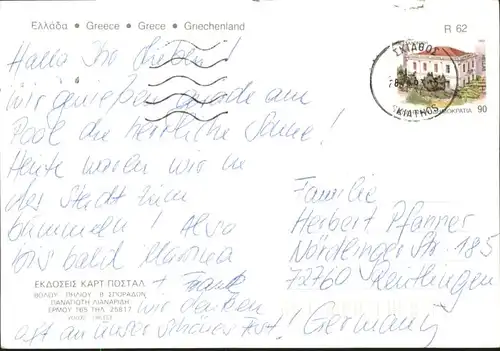 Ελλάδα • Greece • Grece • Griechenland
R 62
ΣΚΙΑΘΟΣ
SKIATHOS
90
Hallo Ihr Lieben!
Wir genießen gerade am
Pool die herrliche Sonne!
Heute wollen wir in
der Stadt zum
bummeln! Also
bis bald
Frank
wir denken
oft an unser schönes Fest!
Familie
Herbert Pfanner
Nördlinger Str. 185
72760 Reutlingen
Germany
ΕΚΔΟΣΕΙΣ ΚΑΡΤ ΠΟΣΤΑΛ
ΒΟΛΟΥ ΠΗΛΙΟΥ Β ΣΠΟΡΑΔΩΝ
ΠΑΝΑΓΙΩΤΗ ΛΙΑΝΑΡΙΔΗ
ΕΡΜΟΥ 165 ΤΗΛ. 25817